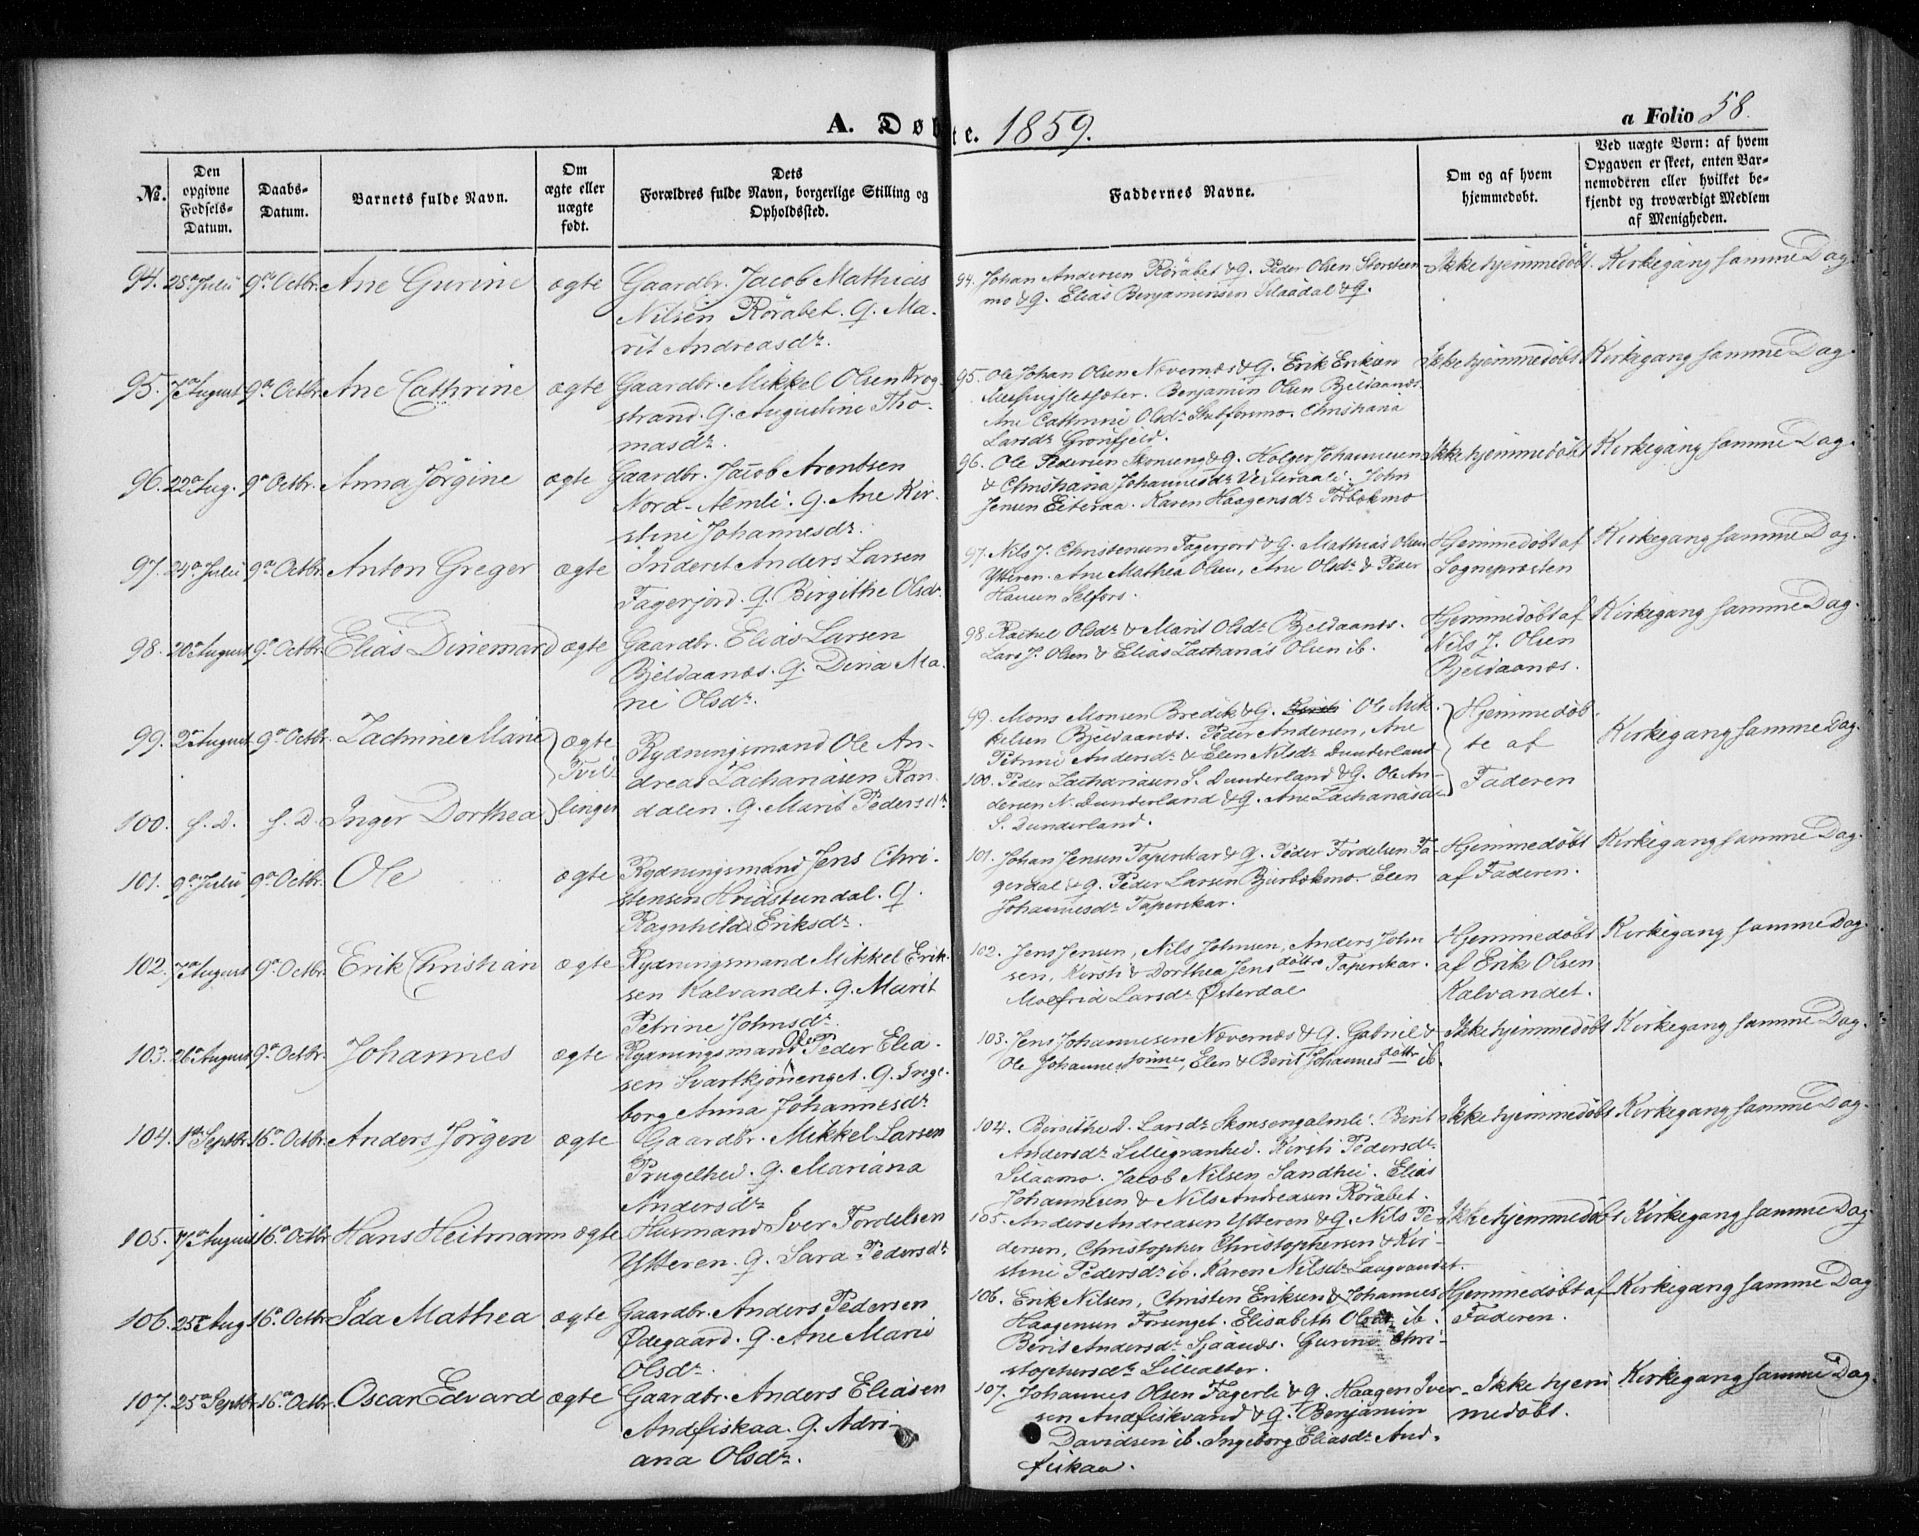 A. Døbte. 1859.
a Folio 58.
No.
Den opgivne Fødsels-Datum.
Daabs-Datum.
Barnets fulde Navn.
Om ægte eller uægte født.
Dets Forældres fulde Navn, borgerlige Stilling og Opholdssted.
Faddernes Navne.
Om og af hvem hjemmedøbt.
Ved uægte Børn: af hvem Opgaven er skeet, enten Barnemoderen eller hvilket bekjendt og troværdigt Medlem af Menigheden.
94. 28de Julii 9de Octbr. Ane Gurine ægte Gaardbr. Jacob Mathias
Nilsen Röräbet. Q. Ma-
rit Andreasdr.
94. Johan Andersen Röräbet & Q. Peder Olsen Storsteen-
mo & Q. Elias Benjaminsen Silaadal & Q.
Ikke hjemmedøbt. Kirkegang samme Dag.
95. 7de August 9de Octbr. Ane Cathrine ægte Gaardbr. Mikkel Olsen Krog-
strand. Q. Augustine Tho-
masdr.
95. Ole Johan Olsen Nævernæs & Q. Erik Eriksen
Benjamin Olsen Bjeldaanæs.
Ane Cathrine Olsdr. Christiana
Larsdr. Grönfjeld.
Ikke hjemmedøbt Kirkegang samme Dag.
96. 22de Aug. 9de Octbr. Anna Jörgine ægte Gaardbr. Jacob Arentsen
Nord-Almli. Q. Ane Kir-
stine Johannesdr.
96. Ole Pedersen Skonseng & Q. Holger Johannesen
& Christiana Johannesdr. Vesteraali. John
Jensen Eiteraa. Karen Haagensdr. Torbekmo
Ikke hjemmedøbt Kirkegang samme Dag.
97. 24de Julii 9de Octbr. Anton Greger ægte Inderst Anders Larsen
Fagerjord. Q. Birgithe Olsdr.
97. Nils J. Christensen Fagerjord & Q. Mathias Olsen
Ytteren. Ane Mathea Olsen, Ane Olsdr. & Peder
Hansen Selfors.
Hjemmedøbt af
Sognepræsten
Kirkegang samme Dag.
98. 20de August 9de Octbr. Elias Dinemard ægte Gaardbr. Elias Larsen
Bjeldaanæs. Q. Dina Ma-
rie Olsdr.
98. Rachel Olsdr. & Marit Olsdr. Bjeldaanæs.
Lars J. Olsen & Elias Zachariás Olsen ib.
Hjemmedøbt af
Nils J. Olsen
Bjeldaanæs.
Kirkegang samme Dag.
99. 2de August 9de Octbr. Zachrine Marie ægte
Tvil-
Rydningsmand Ole An-
dreas Zachariasen Ran-
dalen. Q. Marit Pedersdr.
99. Mons Monsen Bredek & Q. Ole Mik-
kelsen Bjeldaanæs. Peder Andersen, Ane
Petrine Andersdr. & Elen Nilsdr. Dunderland
Hjemmedøb-
te af
Faderen
Kirkegang samme Dag.
100. f. D. f. D. Inger Dorthea linger
100. Peder Zachariasen S. Dunderland & Q. Ole An-
dersen N. Dunderland & Q. Ane Zachariasdr
S. Dunderland.
101. 9de Julii 9de Octbr. Ole ægte Rydningsmand Jens Chri-
stensen Hvidsteendal. Q.
Ragnhild Eriksdr.
101. Johan Jensen Taperskar & Q. Peder Fordelsen Fa-
gerdal & Q. Peder Larsen Bjerbekmo. Elen
Johannesdr. Taperskar.
Hjemmedøbt
af Faderen.
Kirkegang samme Dag.
102. 7de August 9de Octbr. Erik Christian ægte Rydningsmand Mikkel Erik-
sen Kalvandet. Q. Marit
Petrine Johnsdr.
102. Jens Jensen, Nils Johnsen, Anders John-
sen, Kirsti & Dorthea Jensdöttre Taperskar.
Malfrid Larsdr. Østerdal
Hjemmedøbt
af Erik Olsen
Kalvandet.
Kirkegang samme Dag.
103. 26de August 9de Octbr. Johannes ægte Rydningsmand Ole Peder Elia-
sen Svartkjönenget. Q. Inge-
borg Anna Johannesdr.
103. Jens Johannesen Nævernæs & Q. Gabriel &
Ole Johannessönner, Elen & Berit Johannesdöttr. ib.
Ikke hjemmedøbt Kirkegang samme Dag.
104. 1ste Septbr. 16de Octbr. Anders Jörgen ægte Gaardbr. Mikkel Larsen
Prugelhei. Q. Mariana
Andersdr.
104. Birgithe D. Larsdr. Skonsengalmli. Berit
Andersdr. Lillegranhei. Kirsti Pedersdr.
Silaamo. Jacob Nilsen Sandhei. Elias
Johannesen & Nils Andreasen Röräbet.
Ikke hjemmedøbt Kirkegang samme Dag.
105. August 16de Octbr. Hans Heitmann ægte Husmand Iver Fordelsen
Ytteren. Q. Sara Pedersdr.
105. Anders Andreasen Ytteren & Q. Nils Pe-
dersen, Christopher Christophersen & Kir-
stine Pedersdr. ib. Karen Nilsdr. Laagvandet.
Ikke hjemmedøbt Kirkegang samme Dag
106. 25de Aug. 16de Octbr. Ida Mathea ægte Gaardbr. Anders Pedersen
Ødegaard. Q. Ane Marie
Olsdr.
106. Erik Nilsen, Christen Eriksen & Johannes
Haagensen Forsenget. Elisabeth Olsdr. ib.
Berit Andersdr. Sjáanæs. Gurine Chri-
stophersdr. Lillealter.
Hjemmedøbt af
Faderen.
Kirkegang samme Dag
107. 25de Septbr. 16de Octbr. Oscar Edvard ægte Gaardbr. Anders Eliasen
Andfiskaa. Q. Adri-
ana Olsdr.
107. Johannes Olsen Fagerli & Q. Haagen Iver-
sen Andfiskvand & Q. Benjamin
Davidsen ib. Ingeborg Eliasdr. And-
fiskaa.
Ikke hjem-
medøbt.
Kirkegang samme Dag.